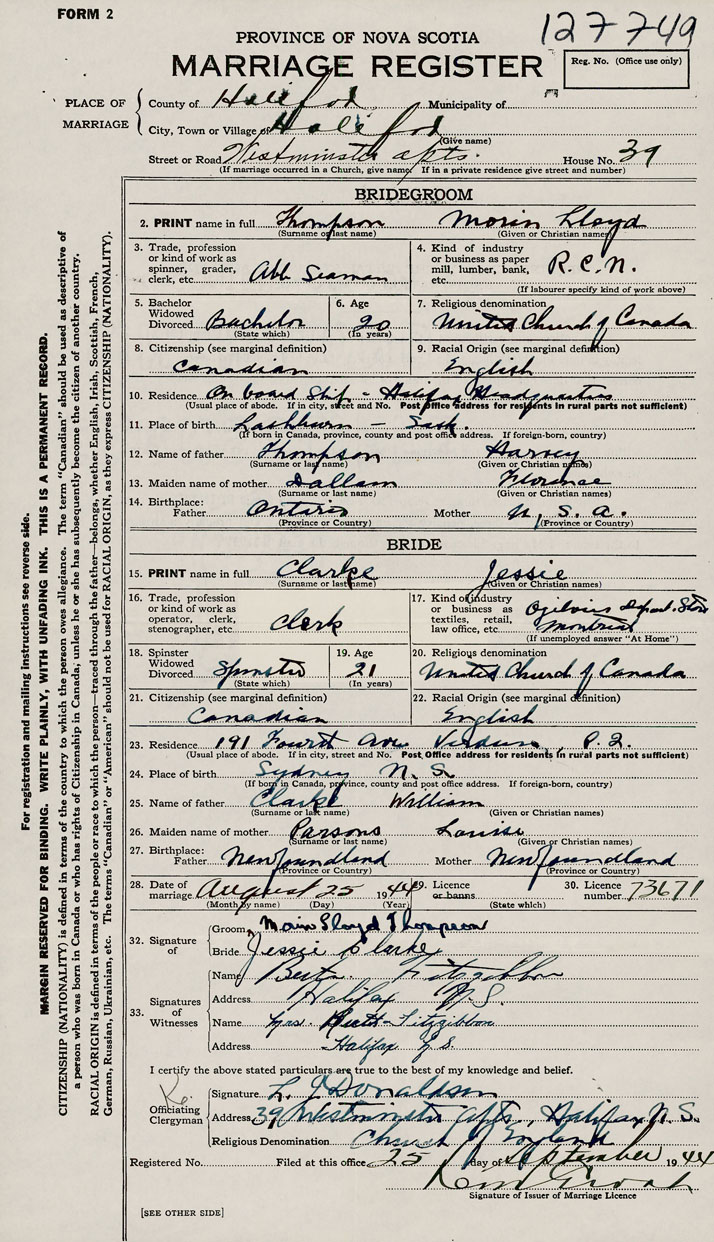 FORM 2
127749
PROVINCE OF NOVA SCOTIA
MARRIAGE REGISTER
Reg. No. (Office use only)
PLACE OF MARRIAGE
County of Halifax Municipality of
City, Town or Village of Halifax
(Give name)
Street or Road Westminster Apts. House No. 39
(If marriage occurred in a Church, give name. If in a private residence give street and number)
BRIDEGROOM
2. PRINT name in full Thompson Morin Lloyd
(Surname or last name) (Given or Christian names)
3. Trade, profession or kind of work as spinner, grader, clerk, etc. Abb Seaman
4. Kind of industry or business as paper mill, lumber, bank, etc. R.C.N.
(If labourer specify kind of work above)
5. Bachelor Widowed Divorced Bachelor
(State which)
6. Age 20
(In years)
7. Religious denomination
United Church of Canada
8. Citizenship (see marginal definition)
Canadian
9. Racial Origin (see marginal definition)
English
10. Residence On board Ship - Halifax Headquarters
(Usual place of abode. If in city, street and No. Post Office address for residents in rural parts not sufficient)
11. Place of birth Lashburn - Sask.
(If born in Canada, province, county and post office address. If foreign-born, country)
12. Name of father Thompson Harvey
(Surname or last name) (Given or Christian names)
13. Maiden name of mother Dallam Florence
(Surname or last name) (Given or Christian names)
14. Birthplace: Father Ontario Mother U.S.A.
(Province or Country) (Province or Country)
BRIDE
15. PRINT name in full Clarke Jessie
(Surname or last name) (Given or Christian names)
16. Trade, profession or kind of work as operator, clerk, stenographer, etc. Clerk
17. Kind of industry or business as textiles, retail, law office, etc. Ogilvies Depart. Store Montreal
(If unemployed answer "At Home")
18. Spinster Widowed Divorced Spinster
(State which)
19. Age 21
(In years)
20. Religious denomination
United Church of Canada
21. Citizenship (see marginal definition)
Canadian
22. Racial Origin (see marginal definition)
English
23. Residence 191 Fourth Ave Verdun, P.Q.
(Usual place of abode. If in city, street and No. Post Office address for residents in rural parts not sufficient)
24. Place of birth Sydney N.S.
(If born in Canada, province, county and post office address. If foreign-born, country)
25. Name of father Clarke William
(Surname or last name) (Given or Christian names)
26. Maiden name of mother Parsons Louise
(Surname or last name) (Given or Christian names)
27. Birthplace: Father Newfoundland Mother Newfoundland
(Province or Country) (Province or Country)
28. Date of marriage August 25 1944
(Month by name) (Day) (Year)
29. Licence or banns
(State which)
30. Licence number 73671
32. Signature of
Groom Morin Lloyd Thompson
Bride Jessie Clarke
33. Signatures of Witnesses
Name Fitzgibbon
Address Halifax N.S.
Name Mrs. Fitzgibbon
Address Halifax N.S.
I certify the above stated particulars are true to the best of my knowledge and belief.
Officiating Clergyman
Signature L. J Donaldson
Address 39 Westminster Apts, Halifax N.S.
Religious Denomination Church of England
Registered No. Filed at this office 25 day of September 1944
Signature of Issuer of Marriage Licence
[SEE OTHER SIDE]
For registration and mailing instructions see reverse side.
MARGIN RESERVED FOR BINDING. WRITE PLAINLY, WITH UNFADING INK. THIS IS A PERMANENT RECORD.
CITIZENSHIP (NATIONALITY) is defined in terms of the country to which the person owes allegiance. The term "Canadian" should be used as descriptive of
a person who was born in Canada or who has rights of Citizenship in Canada; unless he or she has subsequently become the citizen of another country.
RACIAL ORIGIN is defined in terms of the people or race to which the person—traced through the father—belongs, whether English, Irish, Scottish, French,
German, Russian, Ukrainian, etc. The terms "Canadian" or "American" should not be used for RACIAL ORIGIN, as they express CITIZENSHIP (NATIONALITY).